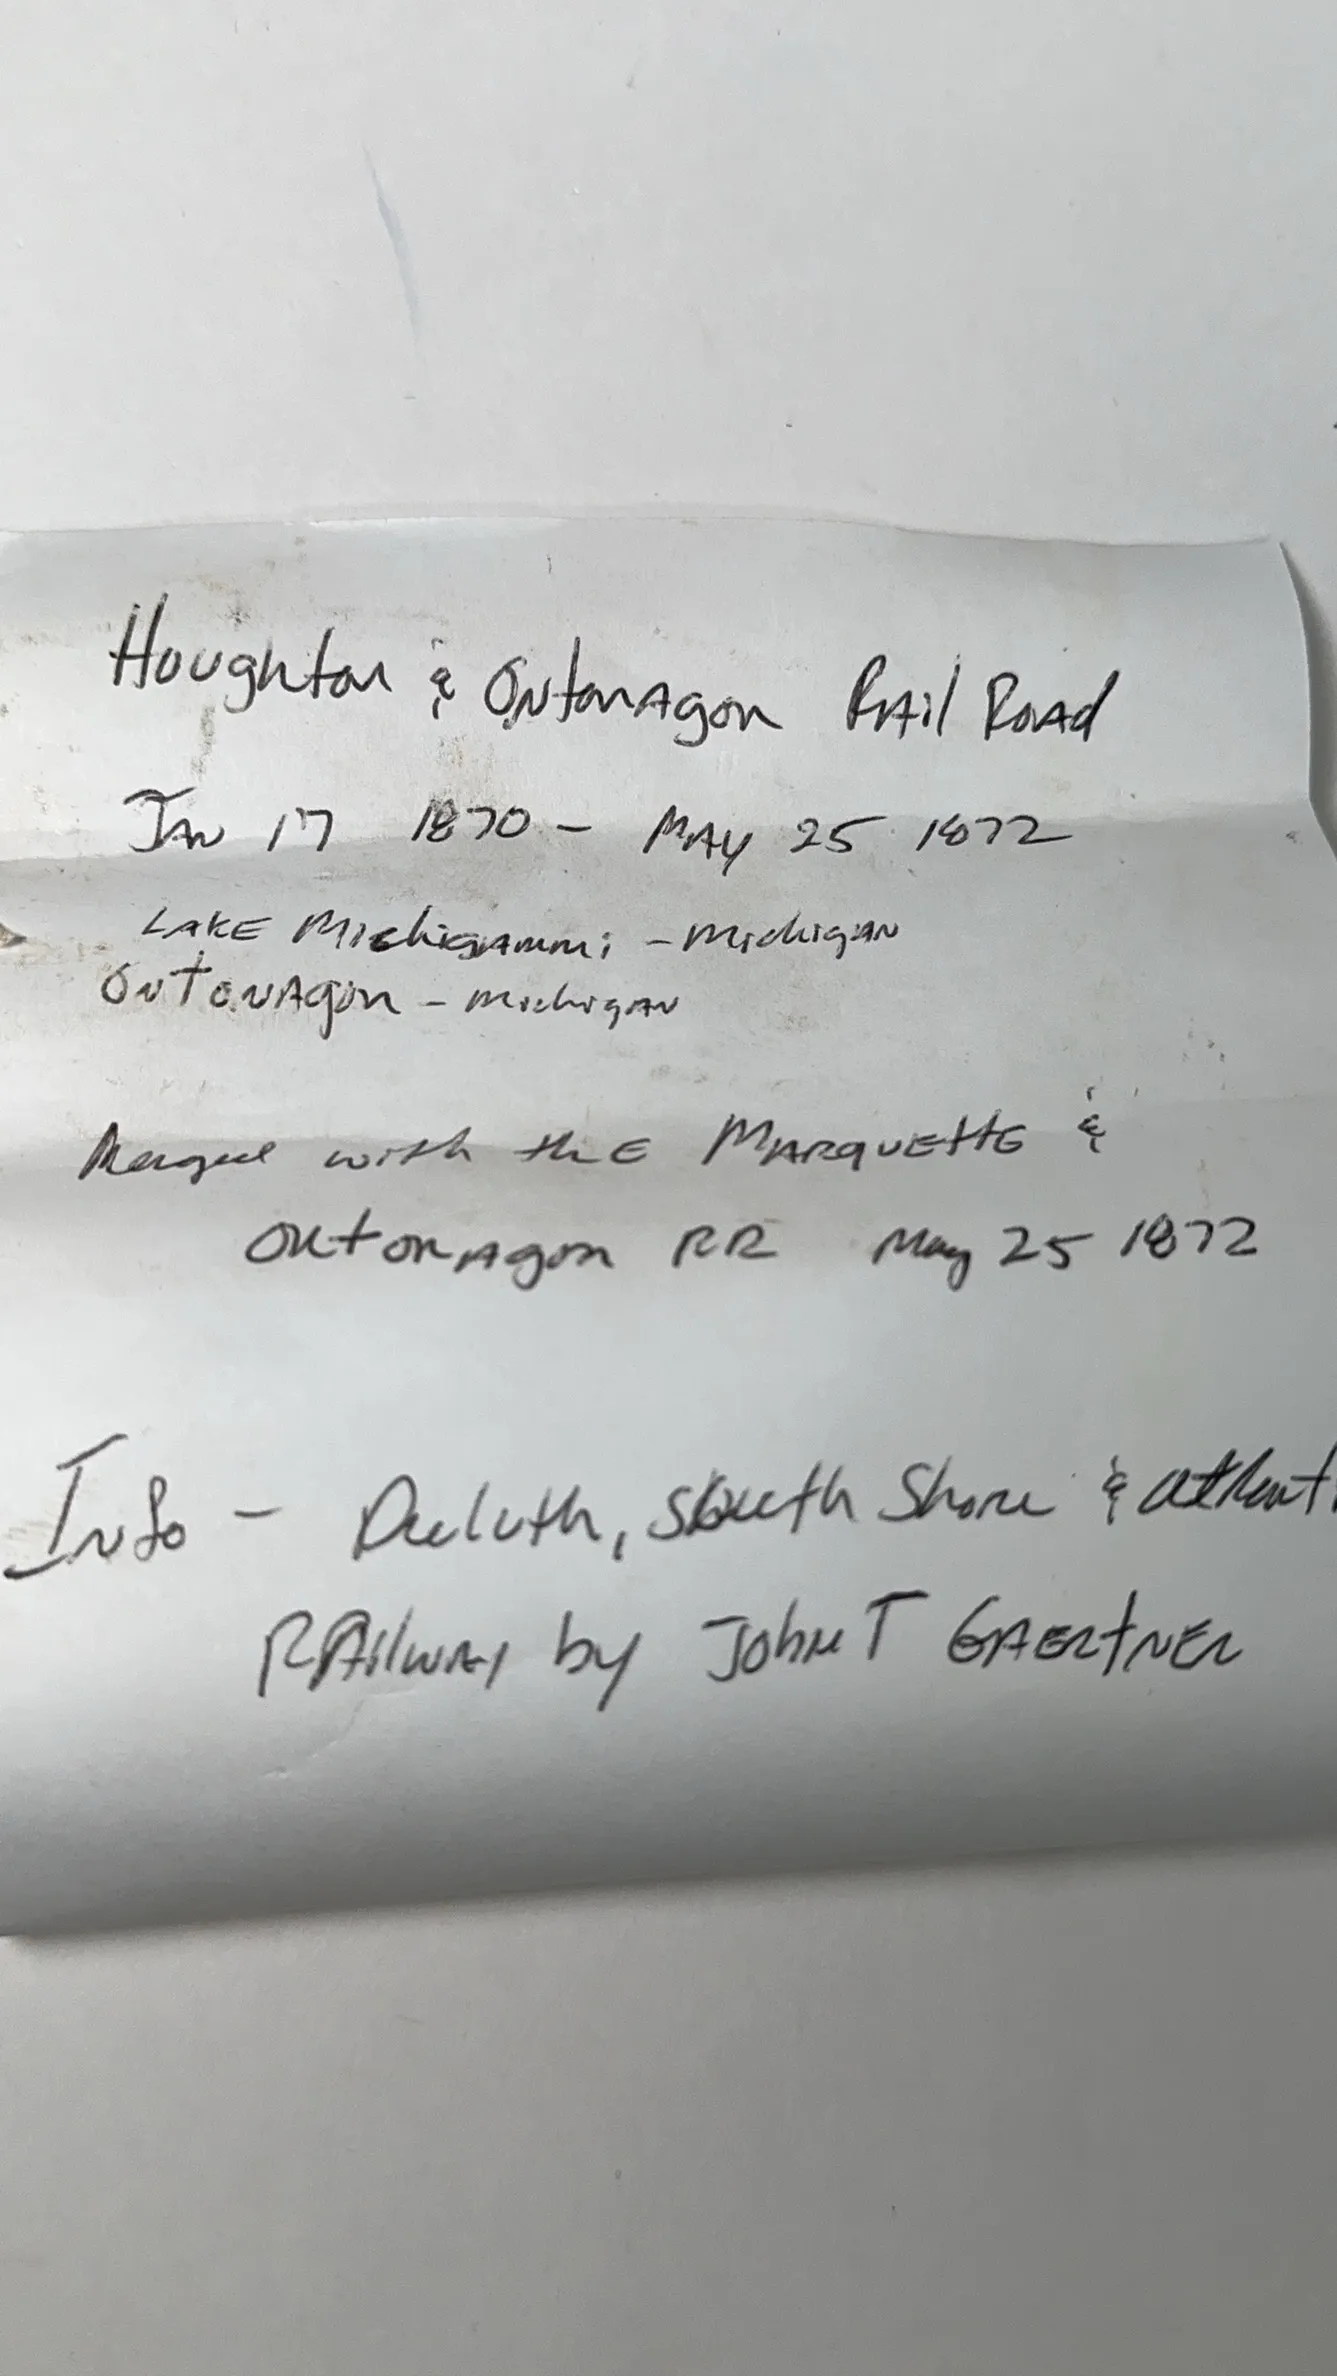 Houghton & Ontonagon Rail Road
Jan 17 1870 - May 25 1872
Lake Michigammi - Michigan
Ontonagon - Michigan
Merged with the Marquette &
Ontonagon RR May 25 1872
Info - Duluth, South Shore & Atlanti
Railway by John T Gaertner